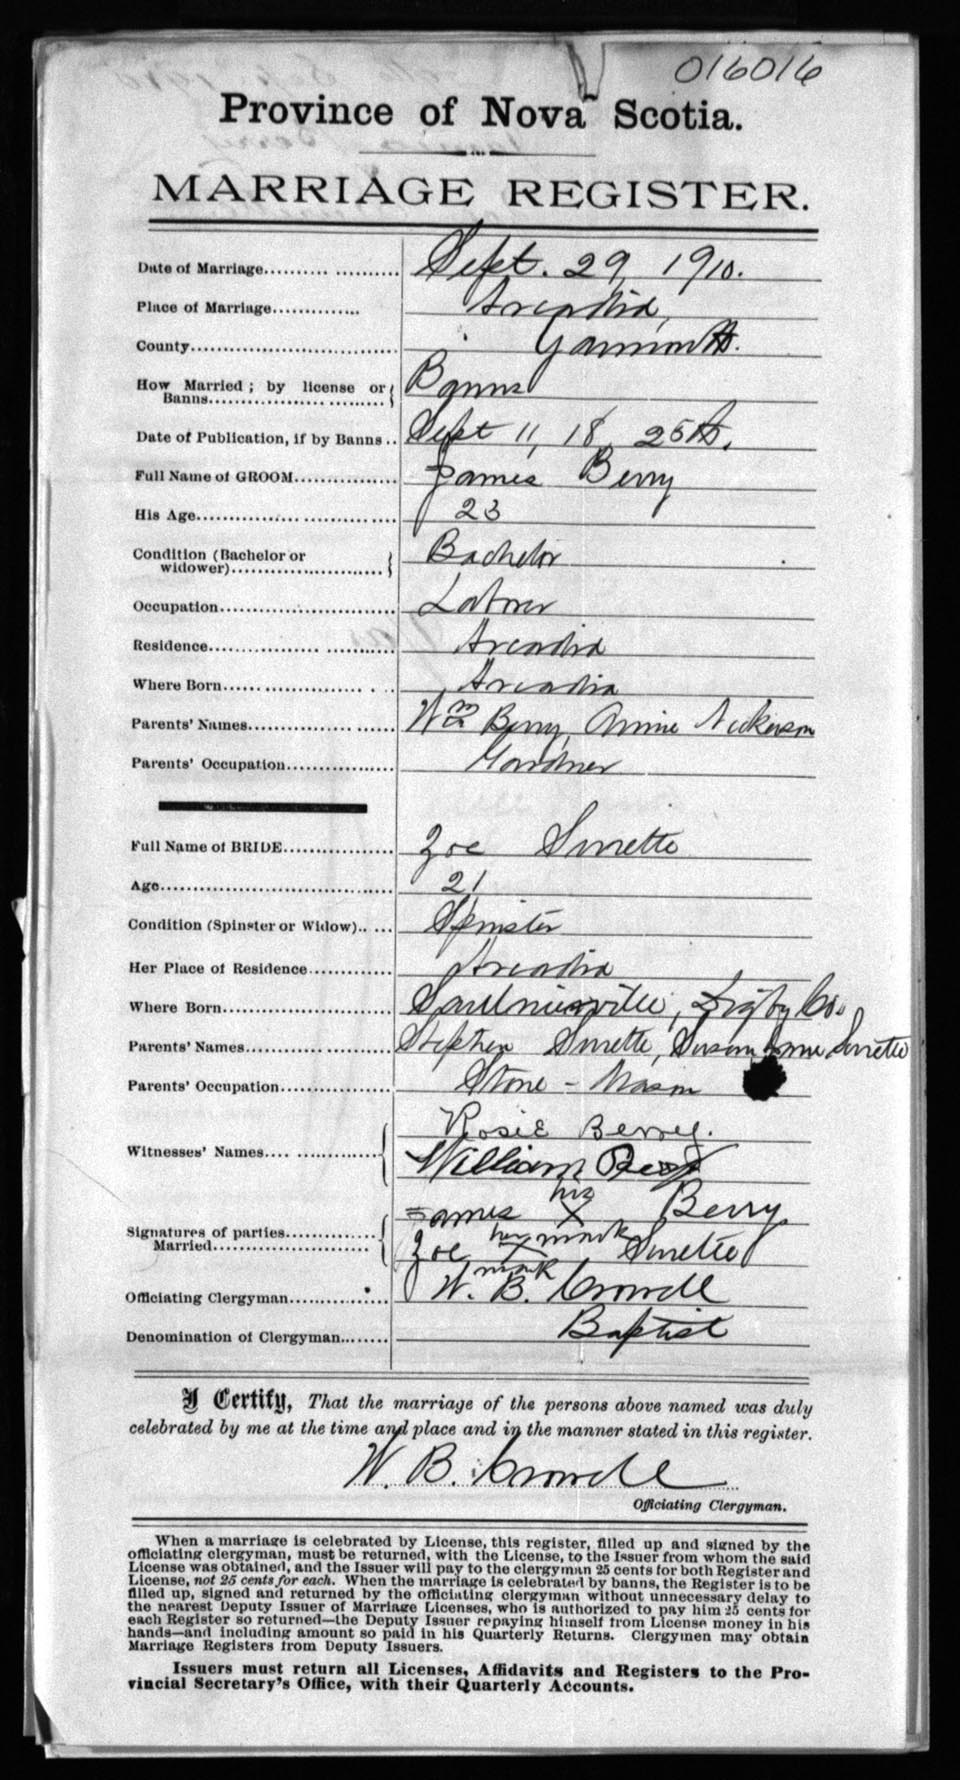 016016
Province of Nova Scotia.
MARRIAGE REGISTER.
Date of Marriage.......... Sept. 29, 1910.
Place of Marriage.............. Arcadia,
County.................................... Yarmouth.
How Married; by license or Banns.................. Banns
Date of Publication, if by Banns.. Sept 11, 18, 25th.
Full Name of GROOM............... James Berry
His Age............................... 23
Condition (Bachelor or widower)....................... Bachelor
Occupation.............................. Laborer
Residence.............................. Arcadia
Where Born........................... Arcadia
Parents' Names...................... Wm Berry, Annie Nickerson
Parents' Occupation................ Gardner
Full Name of BRIDE................ Zoe Surette
Age...................................... 21
Condition (Spinster or Widow)..... Spinster
Her Place of Residence............ Arcadia
Where Born........................... Saulnierville, Digby Co.
Parents' Names...................... Stephen Surette, Susan Anne Surette
Parents' Occupation................ Stone-Mason
Rosie Berry.
Witnesses' Names.................. William Berry
his
Signatures of parties Married....................... James X Berry
her mark
Zoe X Surette
mark
Officiating Clergyman.............. W. B. Crowell
Denomination of Clergyman........ Baptist
I Certify, That the marriage of the persons above named was duly
celebrated by me at the time and place and in the manner stated in this register.
W. B. Crowell
Officiating Clergyman.
When a marriage is celebrated by License, this register, filled up and signed by the
officiating clergyman, must be returned, with the License, to the Issuer from whom the said
License was obtained, and the Issuer will pay to the clergyman 25 cents for both Register and
License, not 25 cents for each. When the marriage is celebrated by banns, the Register is to be
filled up, signed and returned by the officiating clergyman without unnecessary delay to
the nearest Deputy Issuer of Marriage Licenses, who is authorized to pay him 25 cents for
each Register so returned—the Deputy Issuer repaying himself from License money in his
hands—and including amount so paid in his Quarterly Returns. Clergymen may obtain
Marriage Registers from Deputy Issuers.
Issuers must return all Licenses, Affidavits and Registers to the Pro-
vincial Secretary's Office, with their Quarterly Accounts.